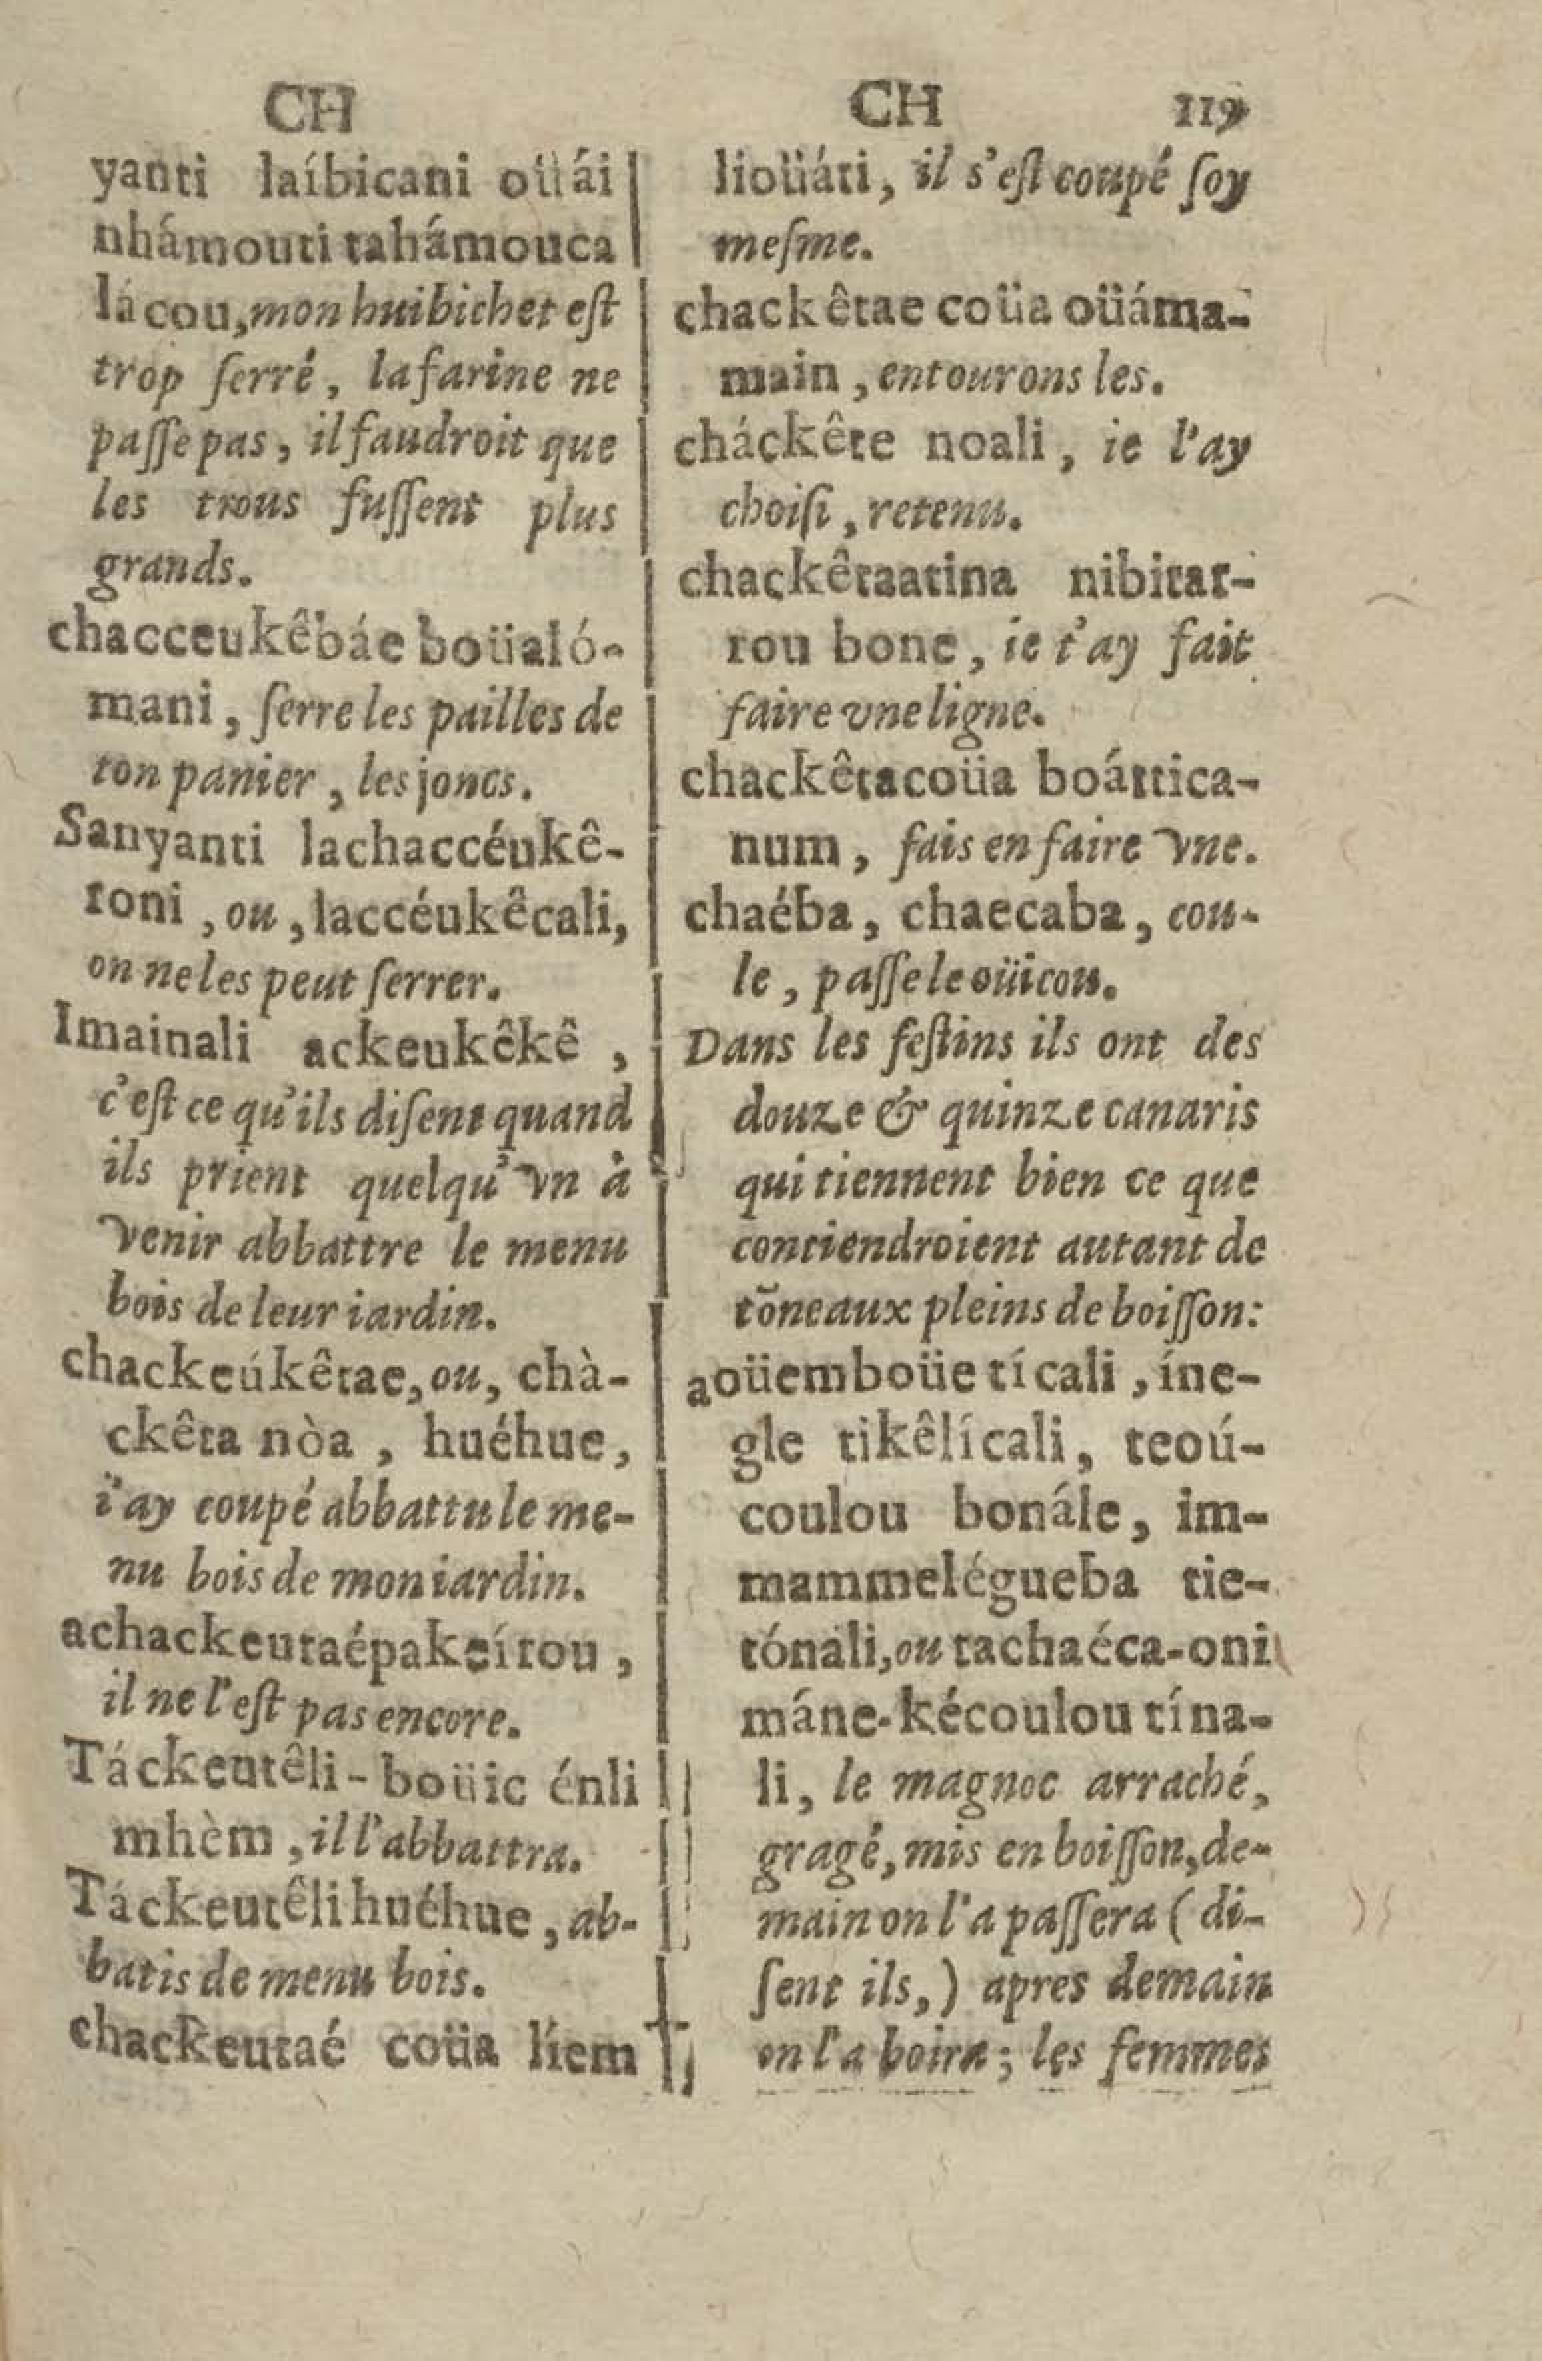 CH
yanti laíbicani oüái
nhámouti tahámouca
lácou, mon huibichet eſt
trop ſerré, la farine ne
paſſe pas, il faudroit que
les trous fuſſent plus
grands.
chacceukêbáe boüaló-
mani, ſerre les pailles de
ton panier, les joncs.
Sanyanti lachaccéukê-
toni, ou, laccéukêcali,
on ne les peut ſerrer.
Imainali ackeukêkê,
c'eſt ce qu'ils diſent quand
ils prient quelqu'vn à
venir abbattre le menu
bois de leur iardin.
chackeúkêtae, ou, chà-
ckêta nòa, huéhue,
i'ay coupé abbattu le me-
nu bois de mon iardin.
achackeutaépakeírou,
il ne l'eſt pas encore.
Táckeutêli-boüic énli
mhèm, il l'abbattra.
Táckeutêli huéhue, ab-
batis de menu bois.
chackeutaé coüa líem
CH 119
lioüáti, il s'eſt coupé ſoy
meſme.
chackêtae coüa oüáma-
main, entourons les.
cháckête noali, ie l'ay
choiſi, retenu.
chackêtaatina nibitat-
rou bone, ie t'ay fait
faire vne ligne.
chackêtacoüa boáttica-
num, fais en faire vne.
chaéba, chaecaba, cou-
le, paſſe le oüicou.
Dans les feſtins ils ont des
douze & quinze canaris
qui tiennent bien ce que
contiendroient autant de
tõneaux pleins de boiſſon:
aoüemboüe tícali, íne-
gle tikêlícali, teoú-
coulou bonále, im-
mammelégueba tie-
tónali, ou tachaéca-oni
máne-kécoulou tína-
li, le magnoc arraché,
gragé, mis en boiſſon, de-
main on l'a paſſera (di-
ſent ils,) apres demain
on l'a boira; les femmes